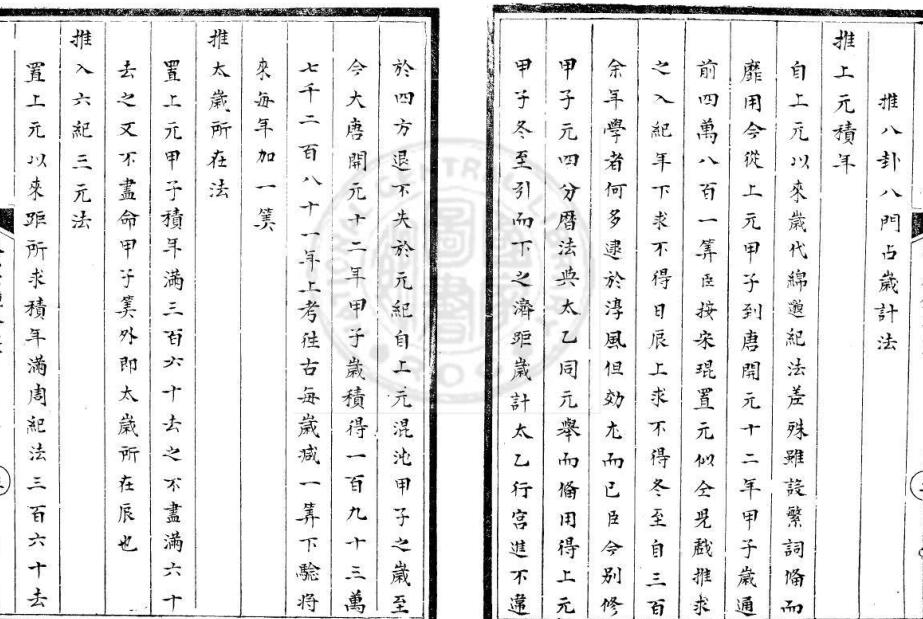 推八卦八門占歲計法
推上元積年
自上元以來歲代綿邈紀法差殊雖設繁詞脩而
靡用今從上元甲子到唐開元十二年甲子歲通
前四萬八百一筭臣按宋琨置元似仝兒戲推求
之入紀年下求不得日辰上求不得冬至自三百
余年學者何多逮於淳風但効尤而已臣今別修
甲子元四分曆法與太乙同元舉而脩用得上元
甲子冬至引而下之濟距歲計太乙行宮進不違
於四方退不失於元紀自上元混沌甲子之歲至
今大唐開元十二年甲子歲積得一百九十三萬
七千二百八十一年上考往古每歲减一筭下驗將
來每年加一筭
推太歲所在法
置上元甲子積年滿三百六十去之不盡滿六十
去之又不盡命甲子筭外即太歲所在辰也
推入六紀三元法
置上元以來距所求積年滿周紀法三百六十去